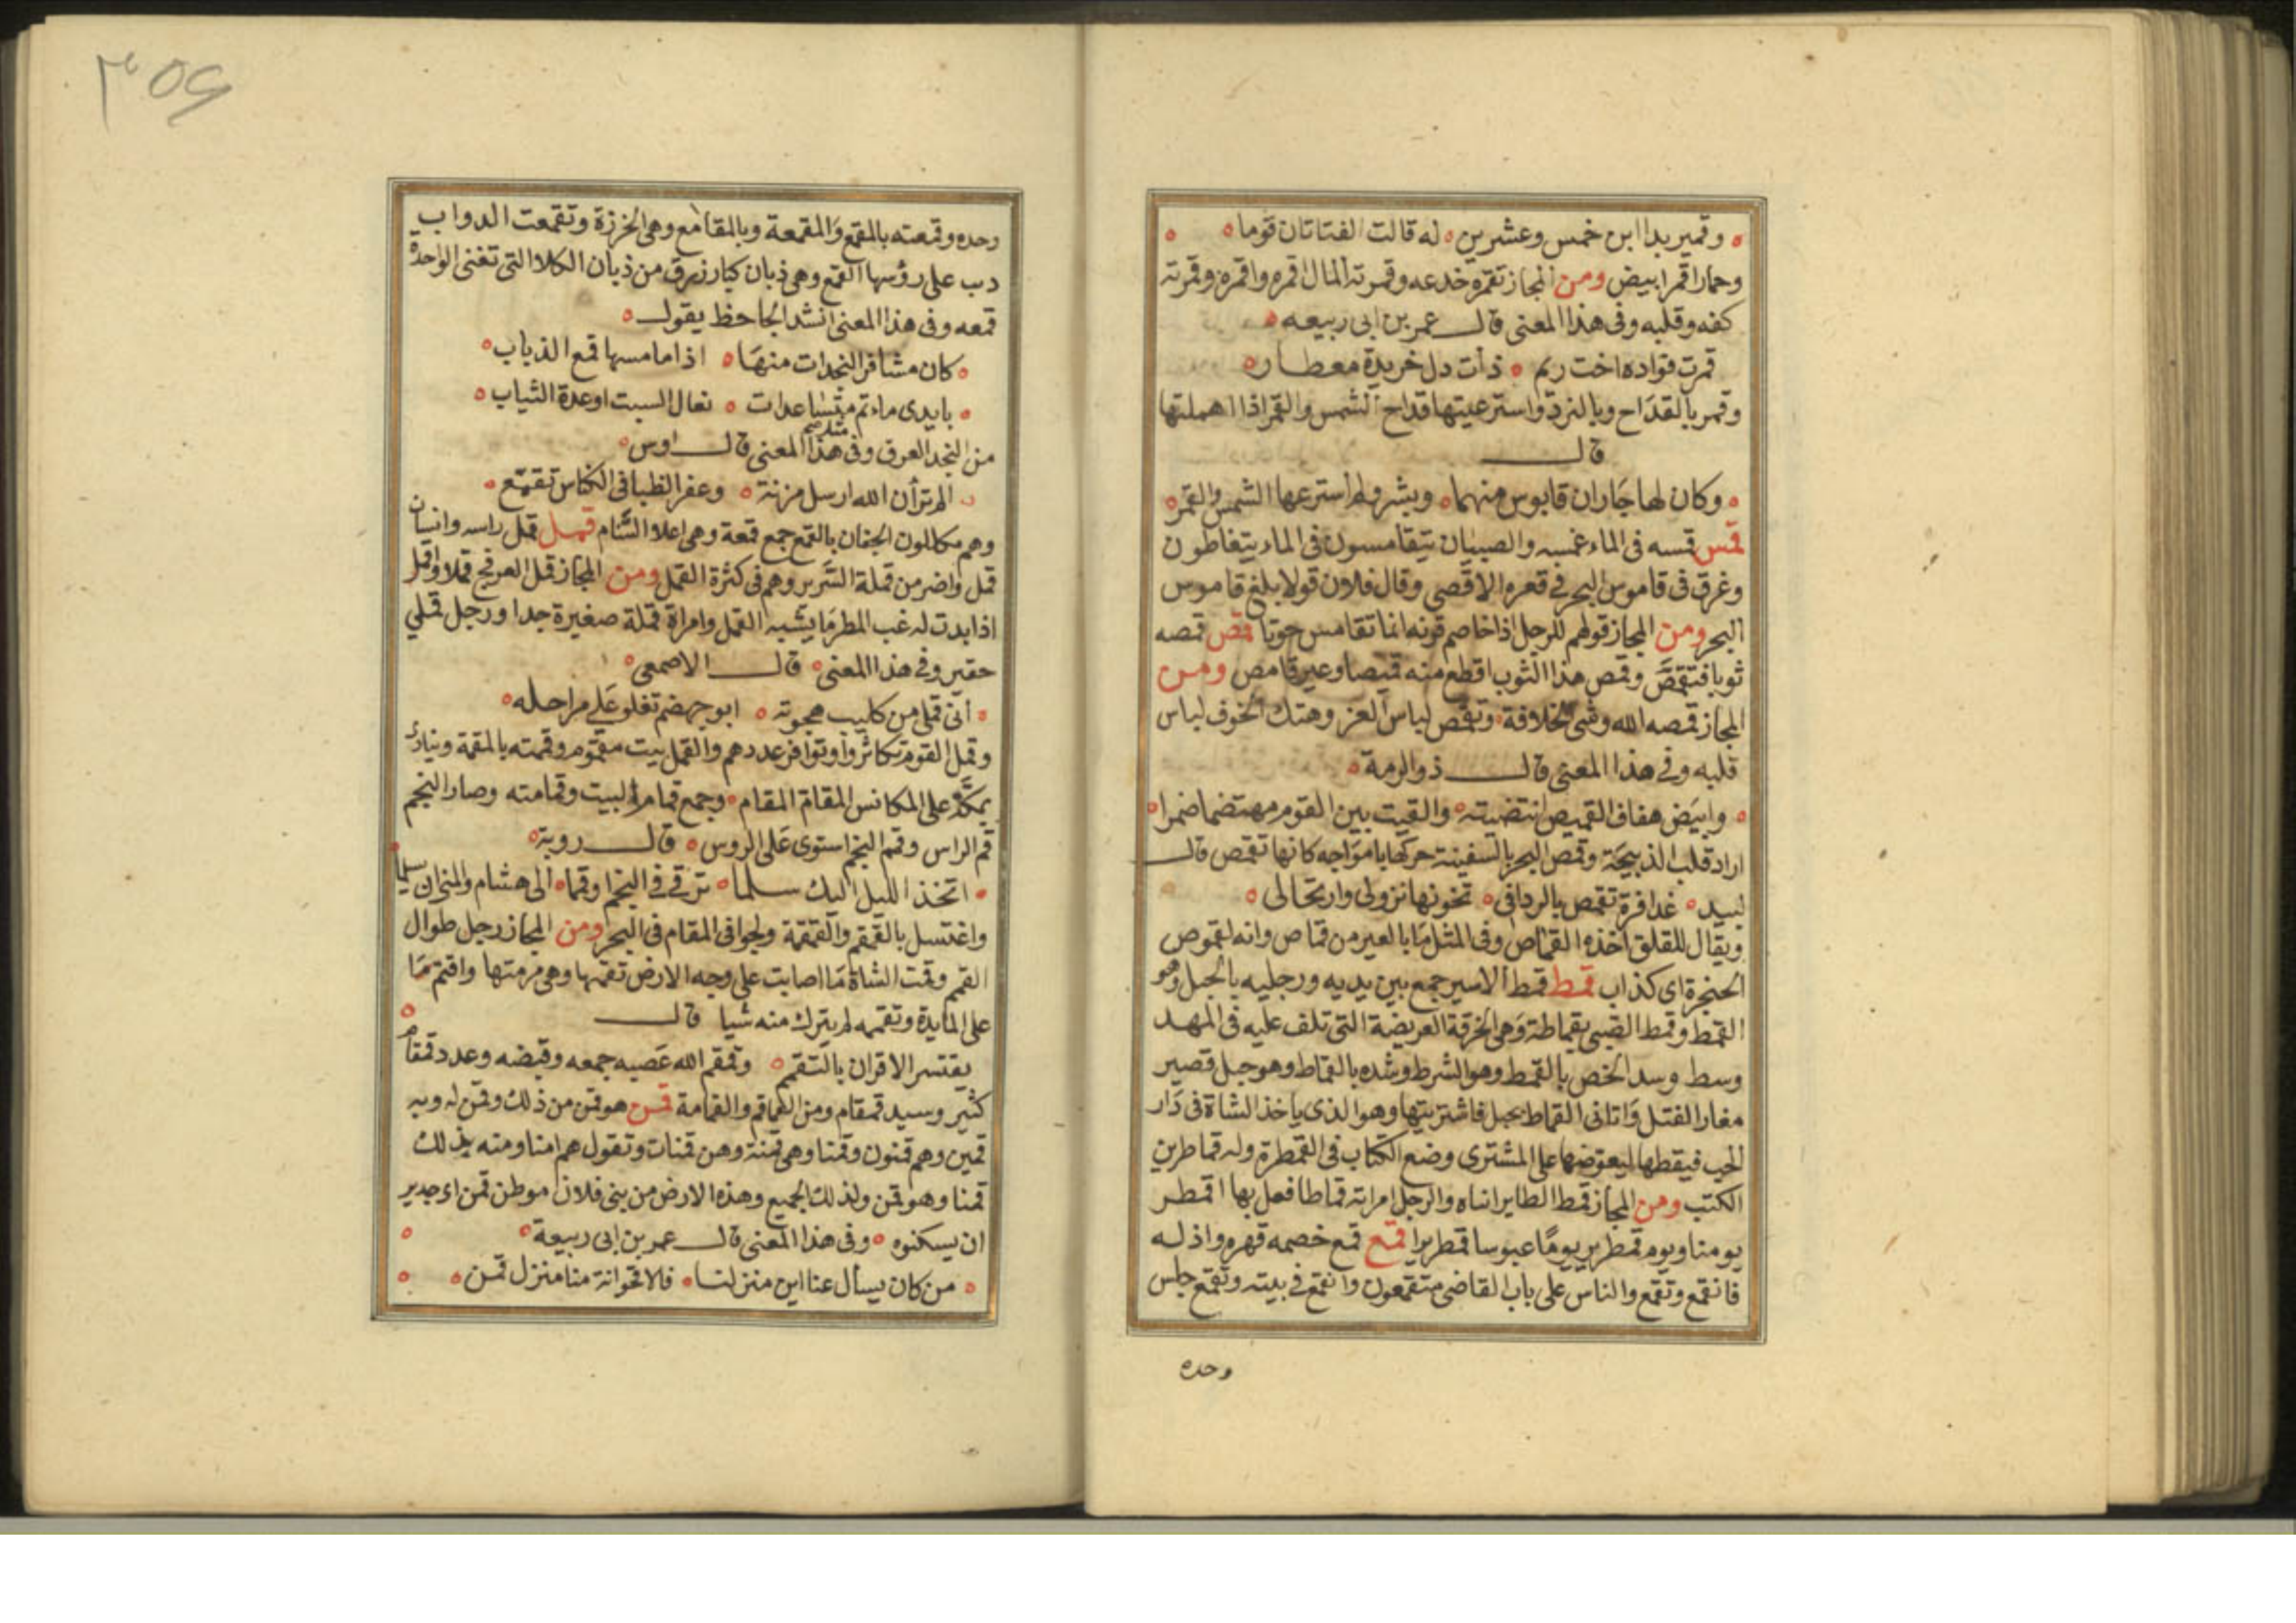 وقمير بدا ابن خمس وعشرين له قالت الفتاتان قوما
وحمار اقمر ابيض ومن المجاز تقمره خدعه وقمرته المال اقمره واقمره وقمرته
كفه وقلبه وفى هذا المعنى قال عمر بن ابى ربيعه
قمرت فواده اخت ريم ذات دل خريدة معطار
وقمر بالقداح وبالنرد واسترعيتها قداح الشمس والقمر اذا اهملتها
قال
وكان لها جاران قابوس منهما وبشر ولم استرعها الشمس والقمر
قمس قمسه فى الماء غمسه والصبيان يتقامسون فى الماء يتغاطون
وغرق فى قاموس البحر فى قعره الاقصى وقال فلان قولا بلغ قاموس
البحر ومن المجاز قولهم للرجل اذا خاصم قرنه انما تقامس حوتا قمص قمصه
ثوبا فتقمص وقمص هذا الثوب اقطع منه قميصا وعير قامص ومن
المجاز قمصه الله وشى الخلافة وتقمص لباس العز وهتك الخوف لباس
قلبه وفى هذا المعنى قال ذو الرمة
وابيض هفاف القميص انتضيته والقيت بين القوم مهتضما ضمرا
اراد قلب الذبيحة وقمص البحر بالسفينة حركها بامواجه كانها تقمص قال
لبيد غدافرة تقمص بالردافى تخونها نزولى وارتحالى
ويقال للقلق اخذه القماص وفى المثل ما بالعير من قماص وانه لقموص
الحنجرة اى كذاب قمط قمط الاسير جمع بين يديه ورجليه بالحبل وهو
القمط وقمط الصبى بقماطه وهى الخرقة العريضة التى تلف عليه فى المهد
وسط وسد الخص بالقمط وهو الشرط وشده بالقماط وهو حبل قصير
مغار الفتل واتانى القماط بحبل فاشتريتها وهو الذى ياخذ الشاة فى دار
الحب فيقطها ليعوضها على المشترى وضع الكتاب فى القمطرة وله قماطر من
الكتب ومن المجاز قمط الطاير انثاه والرجل امراته قماطا فعل بها اقمطر
يومنا ويوم قمطرير يوما عبوسا قمطريرا قمع قمع خصمه قهره واذله
فانقمع وتقمع والناس على باب القاضى متقمعون وانقمع فى بيته وتقمع جلس
وحده
٣٥٤
وحده وقمعته بالمقمع والمقمعة وبالمقامع وهى الخرزة وتقمعت الدواب
دب على رؤسها القمع وهى ذبان كبار زرق من ذبان الكلا التى تغنى الواحدة
قمعه وفى هذا المعنى انشد الجاحظ يقول
كان مشافر النجدات منها اذا ما مسها قمع الذباب
بايدى ماءتم متساعدات نعال السبت او عدة الثياب
من النجد العرق وفى هذا المعنى قال اوس
الم تر أن الله ارسل مزنة وعفر الظبا فى الكناس تقمع
وهم يكللون الجفان بالقمع جمع قمعة وهى اعلا السنام قمل قمل راسه وانسان
قمل واضر من قملة السرير وهم فى كثرة القمل ومن المجاز قمل العرفج قملا واقمل
اذا بدت له غب المطر ما يشبه القمل وامراة قملة صغيرة جدا ورجل قملي
حقير وفى هذا المعنى قال الاصمعى
أنى قملى من كليب هجوته ابو جهضم تغلو على مراجله
وقمل القوم تكاثروا وتوافر عددهم والقمل بيت مقموم وقممته بالمقمة وينادى
بمكة على المكانس المقام المقام وجمع قمامة البيت وقمامته وصار النجم
قم الراس وقمم النجم استوى على الروس قال روبة
اتخذ الليل اليك سلما ترقى فى النجم اوقما الى هشام والمنجان سلما
واغتسل بالقمقم والقمقمة ولجوا فى المقام فى البحر ومن المجاز رجل طوال
القمم وقمت الشاة ما اصابت على وجه الارض تقمها وهى مرمتها واقتم ما
على المايدة وتقممه لم يترك منه شيا قال
يقتسر الاقران بالتقمم وقمقم الله عصبه جمعه وقبضه وعدد قمقام
كثير وسيد قمقام ومن القماقم والقمامة قمن هو قمن من ذلك وقمن له وبه
قمين وهم قمنون وقمنا وهى قمنة وهن قمنات وتقول هم امنا ومنه بذلك
قمنا وهو قمن ولذلك الجميع وهذه الارض من بنى فلان موطن قمن اى جدير
ان يسكنوه وفى هذا المعنى قال عمر بن ابى ربيعة
من كان يسأل عنا اين منزلنا فالاقحوانة منا منزل قمن